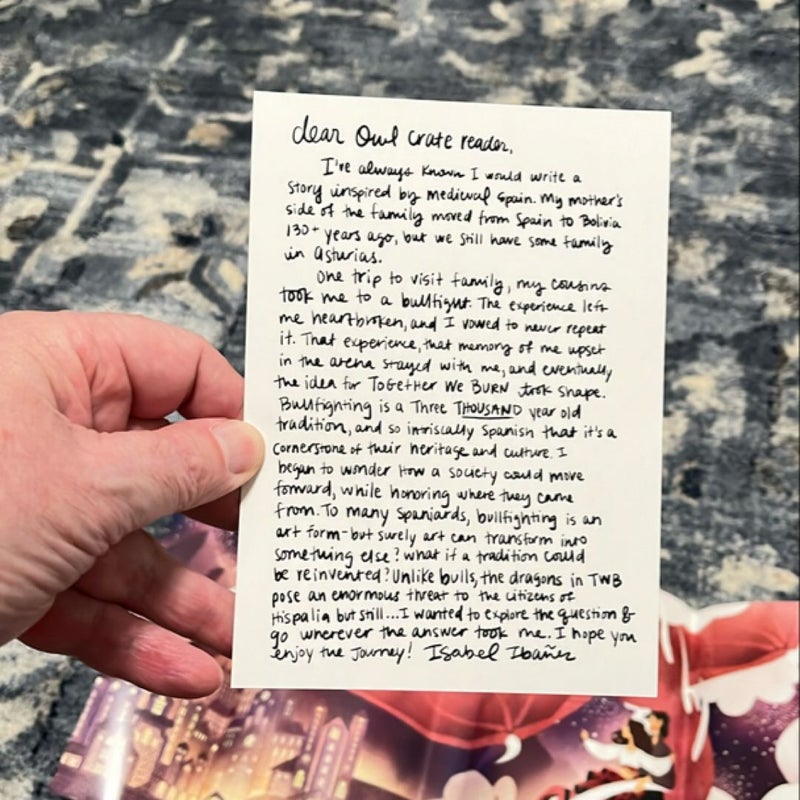 dear Owl Crate reader,
I've always known I would write a
story inspired by medieval Spain. My mother's
side of the family moved from Spain to Bolivia
130+ years ago, but we still have some family
in Asturias.
One trip to visit family, my cousins
took me to a bullfight. The experience left
me heartbroken, and I vowed to never repeat
it. That experience, that memory of me upset
in the arena stayed with me, and eventually,
the idea for ToGetHer We BURN took shape.
Bullfighting is a Three THOUSAND year old
tradition, and so intriscally Spanish that it's a
cornerstone of their heritage and culture. I
began to wonder how a society could move
forward, while honoring where they came
from. To many Spaniards, bullfighting is an
art form-but surely art can transform into
something else? what if a tradition could
be reinvented? Unlike bulls, the dragons in TWB
pose an enormous threat to the citizens of
Hispalia but still... I wanted to explore the question &
go wherever the answer took me. I hope you
enjoy the journey! Isabel Ibañez